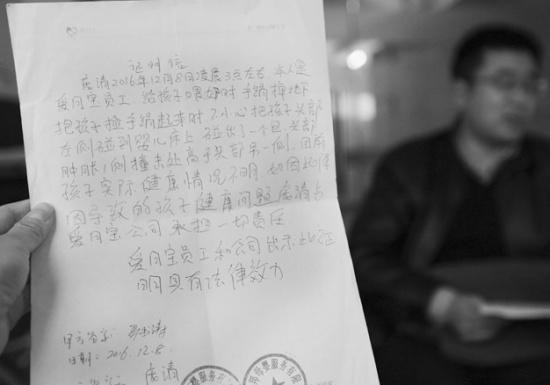 证明信
庞清2016年12月8日凌晨3点左右,本人是
爱月宝员工,给孩子喂奶时手绢掉地下
把孩子捡手绢起来时不小心把孩子头部
左侧碰到婴儿床上碰出了一个包,头部
肿胀1侧撞击处高于头部另一侧,目前
孩子实际健康情况不明,如因此事
因导致的孩子健康问题庞清与
爱月宝公司承担一切责任
爱月宝员工和公司出示此证
明具有法律效力
甲方签字:
日期:2016.12.8
庞清